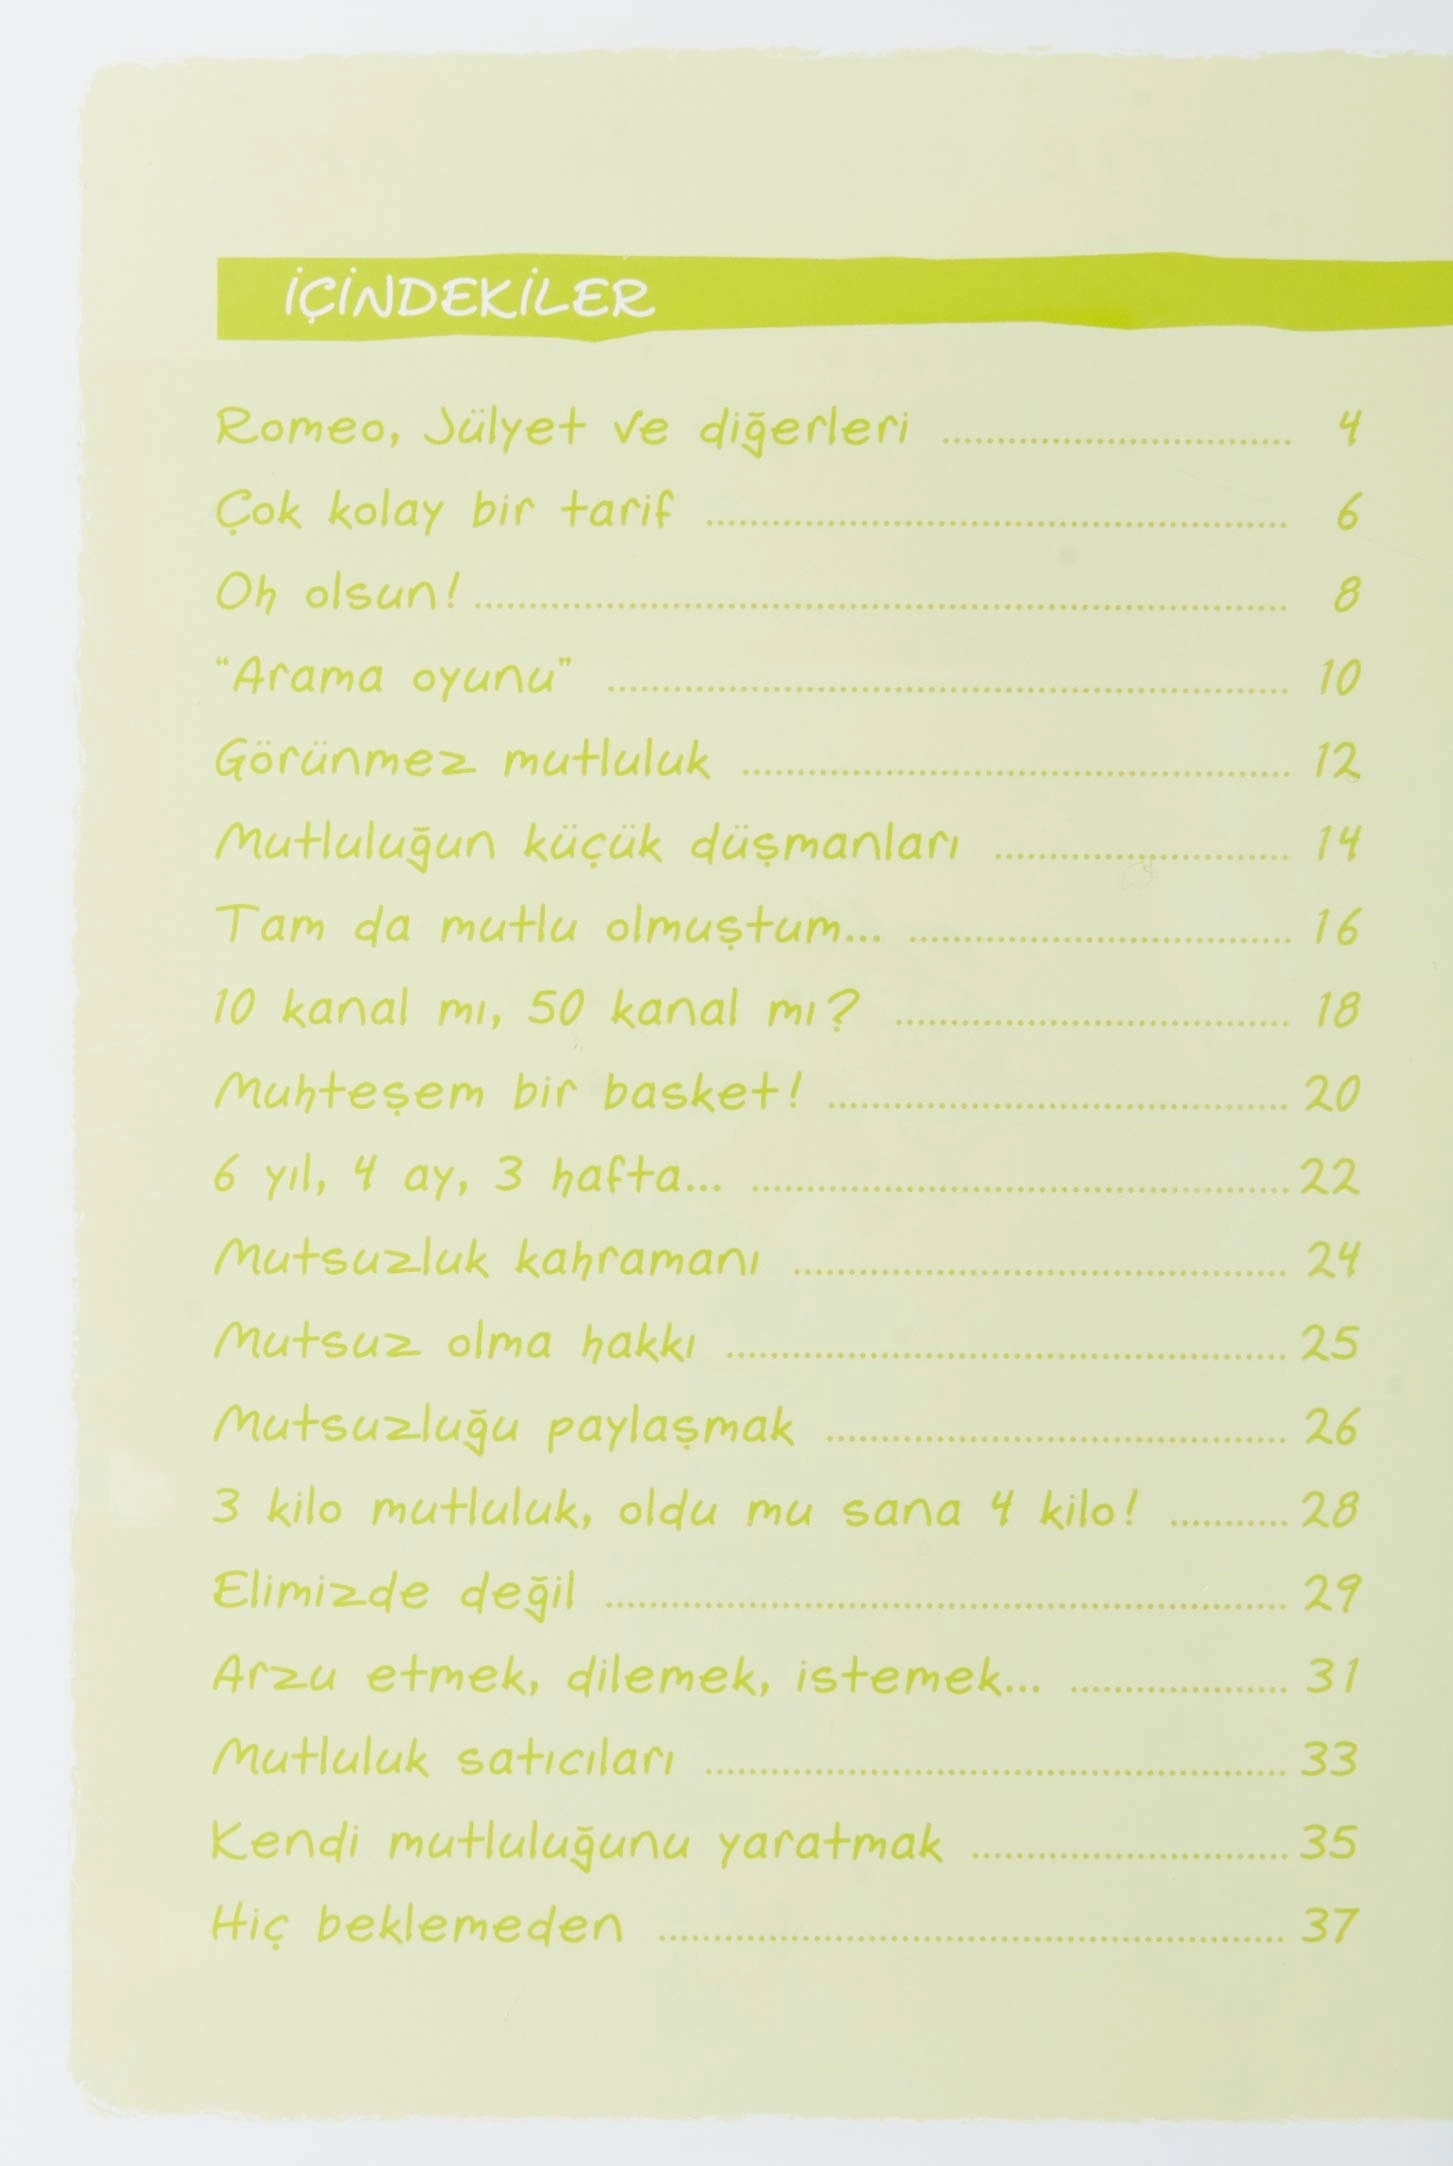 İÇİNDEKİLER
Romeo, Jülyet ve diğerleri ................................ 4
Çok kolay bir tarif ..................................................... 6
Oh olsun! .......................................................................... 8
“Arama oyunu” .............................................................. 10
Görünmez mutluluk .................................................. 12
Mutluluğun küçük düşmanları ........................... 14
Tam da mutlu olmuştum... ................................... 16
10 kanal mı, 50 kanal mı? .................................... 18
Muhteşem bir basket! .......................................... 20
6 yıl, 4 ay, 3 hafta... ................................................. 22
Mutsuzluk kahramanı ............................................. 24
Mutsuz olma hakkı ................................................... 25
Mutsuzluğu paylaşmak .......................................... 26
3 kilo mutluluk, oldu mu sana 4 kilo! ........... 28
Elimizde değil .............................................................. 29
Arzu etmek, dilemek, istemek... .................... 31
Mutluluk satıcıları ..................................................... 33
Kendi mutluluğunu yaratmak ............................. 35
Hiç beklemeden ......................................................... 37